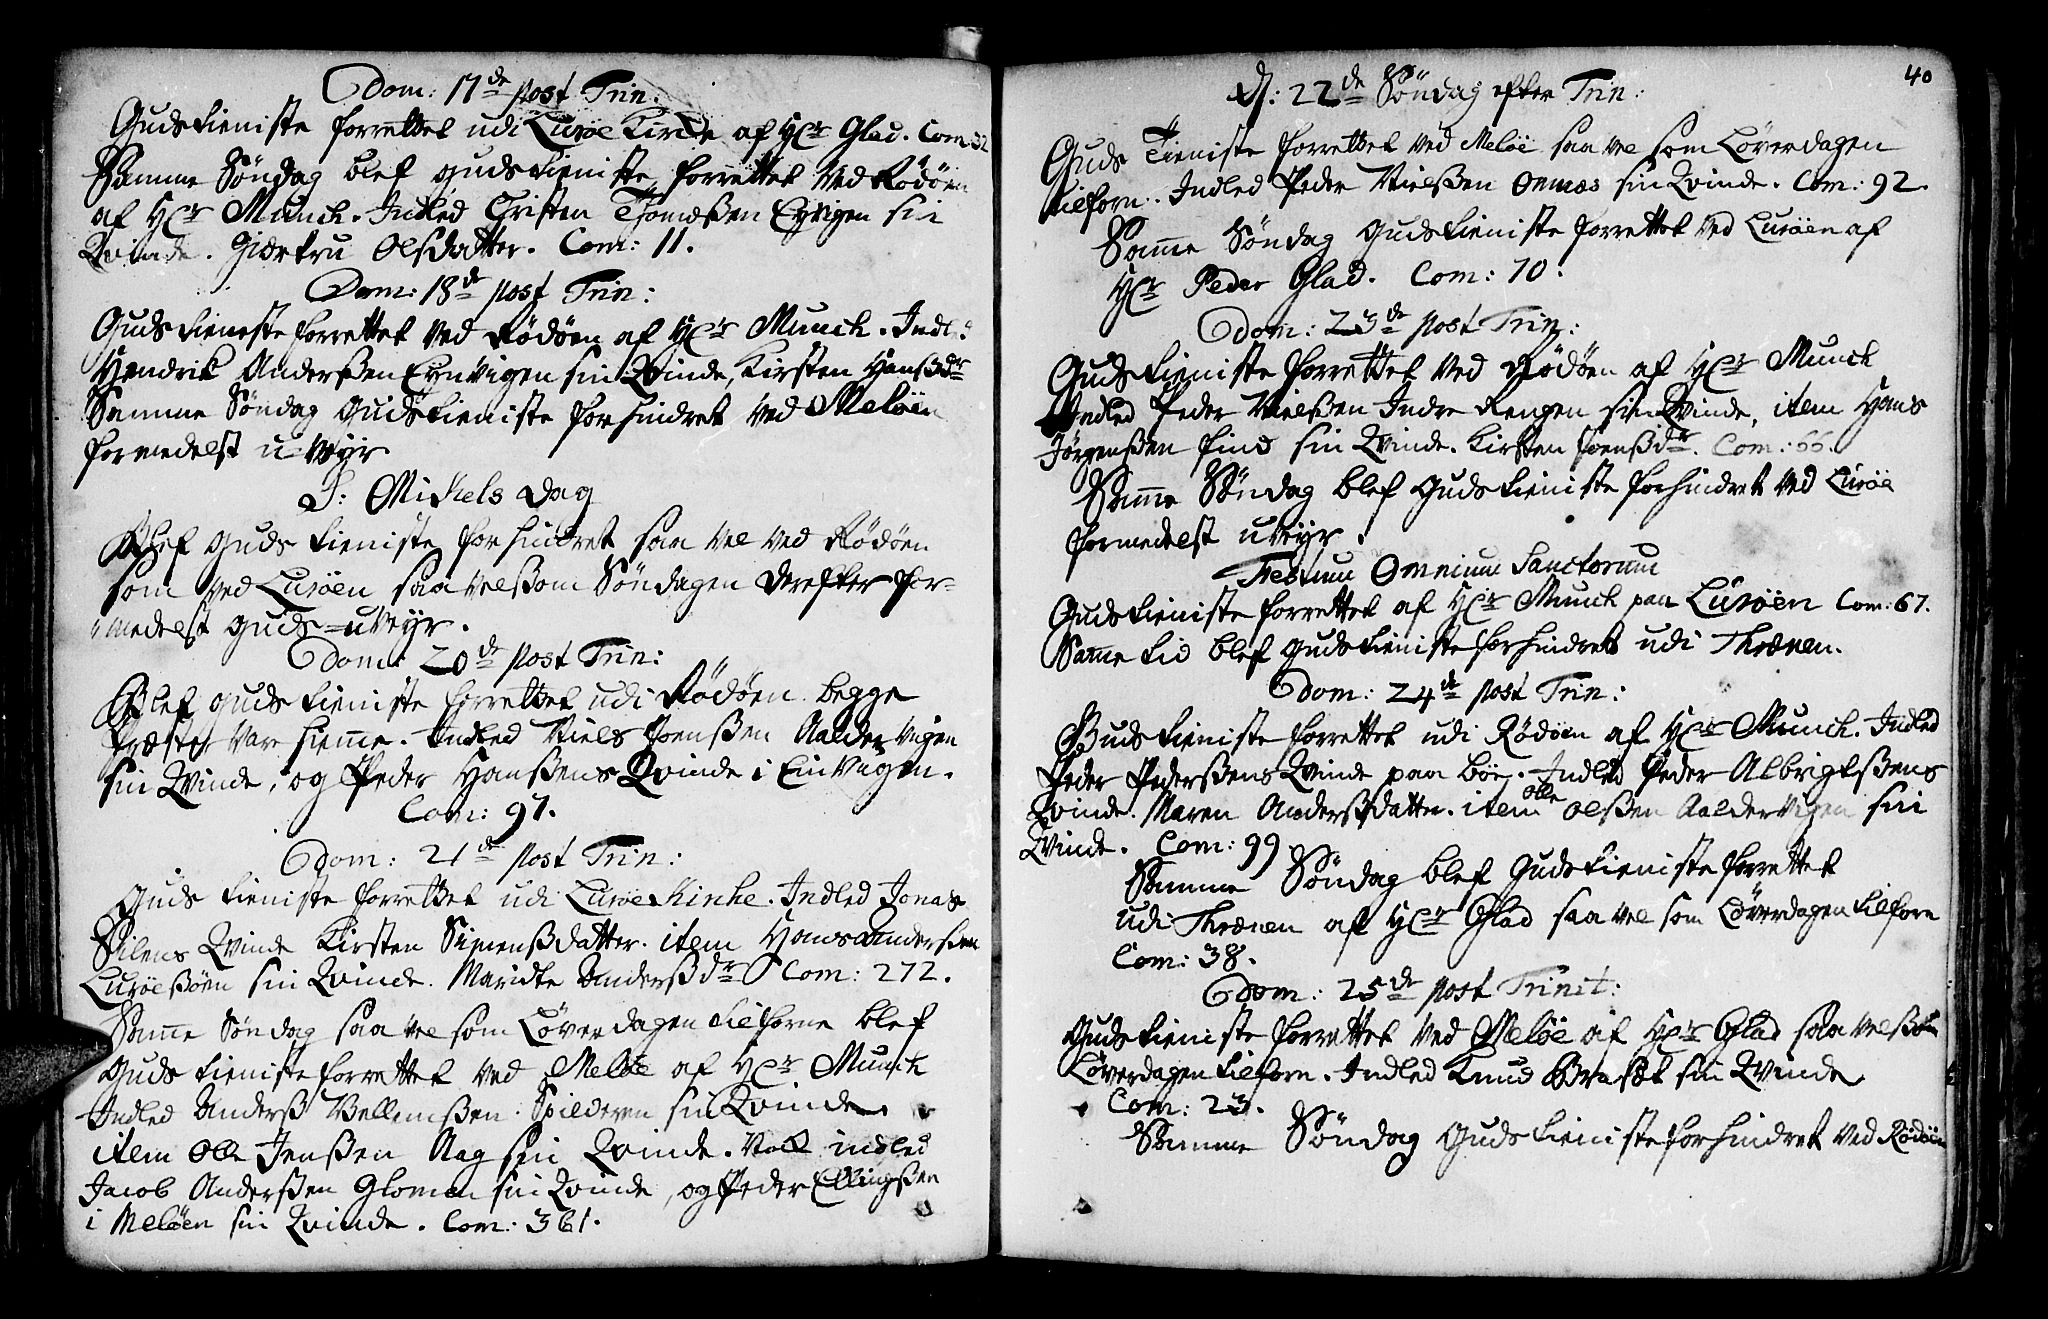 Dom: 17de post Trin:
Guds tieniste forrettet udi Lurøe Kirche af Hr Glad. Com: 32
Samme Søndag blef gudstieniste forrettet ved Rödöen
af Hr Munch. Indled Christen Thomæßen Eyvigen sin
Qvinde. Giærtru Olsdatter. Com: 11.
Dom: 18de post Trin:
Guds tieneste forrettet ved Rödöen af Hr Munch. Indled
Hendrik Anderßen Eynvigen sin Qvinde, Kirsten Hansdr
Samme Söndag Gudstieniste forhindret ved Meløen
formedelst u-Veyr
S: Mikels Dag
Blef Guds tieniste forhindret saa vel ved Rödöen
som ved Lurøen saa velsom Söndagen derefter for-
medelst guds-uveyr.
Dom: 20de post Trin:
Blef guds tieniste forrettet udi Rödöen begge
Præster var hieme. Indled Niels Joenßen Aaldervigen
sin Qvinde, og Peder Hanßens Qvinde i Einvigen.
Com: 97.
Dom: 21de post Trin:
Guds tieniste forrettet udi Lurøe Kirke. Indled Jonas
Qvinde Kirsten Simensdatter. item Hans Anderßen
sin Qvinde. Maridte Andersdr Com: 272.
Same Söndag saa vel som Löverdagen tilforne blef
Guds tieniste forrettet ved Meløe af Hr Munch
Indled Anders Vellemßen Spilderen sin Qvinde
item Olle Jenßen Aag sin Qvinde. Nock indled
Jacob Anderßen Glomen sin Qvinde, og Peder Ellingßen
i Meløen sin Qvinde. Com: 361.
40
D: 22de Söndag efter Trin:
Guds Tieniste forrettet ved Meløe saa vel som Löverdagen
tilforn. Indled Peder Nielßen Onnæs sin Qvinde. Com: 92.
Same Söndag Guds tieniste forrettet ved Lurøen af
Hr Peder Glad. Com: 70.
Dom: 23de post Trin:
Guds tieniste forrettet ved Rödöen af Hr Munch
Indled Peder Nielßen Indre Rengen sin Qvinde, item Hans
Jörgenßen find sin Qvinde. Kirsten Joensdr. Com: 66.
Same Söndag blef Guds tieniste forhindret ved Lurøe
formedelst uveyr.
Festum Omnium Sanctorum
Guds tieniste forrettet af Hr Munch paa Lurøen Com: 67.
Same tid blef gudstieniste forhindret udi Thrænen.
Dom: 24de post Trin:
Guds tieniste forrettet udi Rödöen af Hr Munch. Indled
Peder Pederßens Qvinde paa böe. Indled Peder Albrigtßens
Qvinde. Maren Andersdatter. item Olle Olßen Aaldervigen sin
Qvinde. Com: 99
Samme Söndag blef Gudstieniste forrettet
udi Thrænen af Hr Glad saa vel som Löverdagen tilforn
Com: 38.
Dom: 25de post Trinit:
Guds tieniste forrettet ved Meløe af Hr Glad saa velsom
Löverdagen tilforn. Indled Knud Brask sin Qvinde
Com: 23.
Samme Söndag Guds tieniste forhindret ved Rödöen